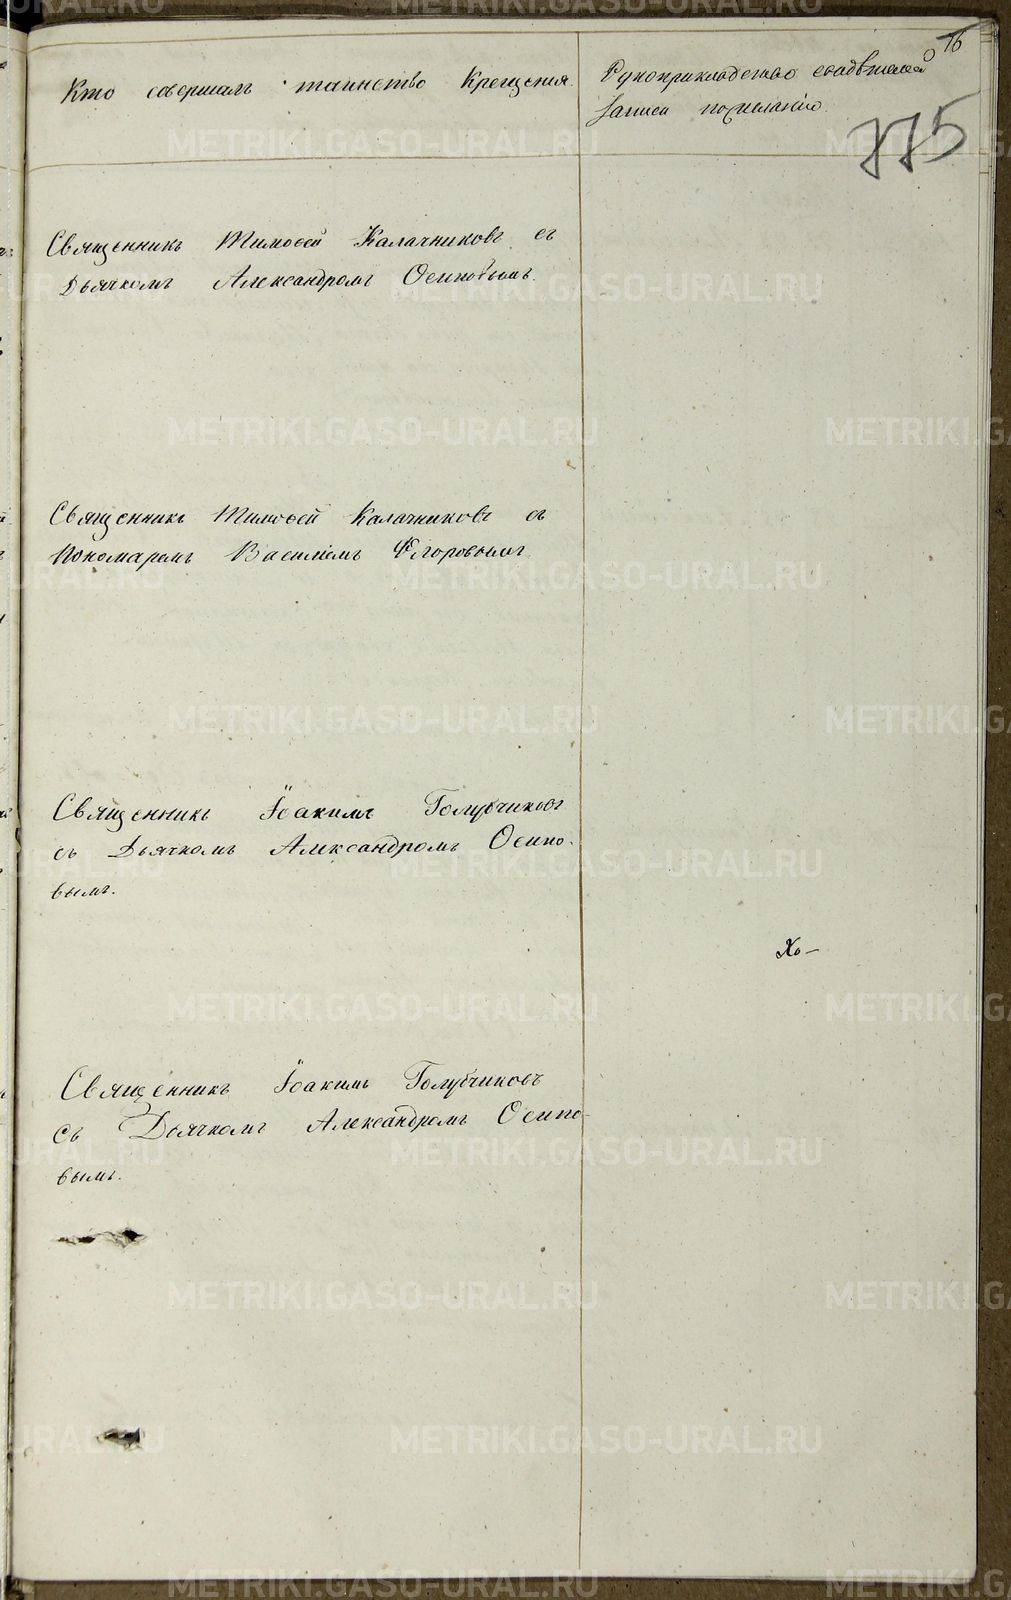 76
775
Кто совершалъ таинство Крещенія.
Рукоприкладство свидѣтелей
записи по желанію
Священникъ Тимоѳей Калачниковъ съ
Дьячкомъ Александромъ Осиповымъ.
Священникъ Тимоѳей Калачниковъ съ
Пономаремъ Василіемъ Егоровымъ
Священникъ Іоакимъ Голубчиковъ
съ Дьячкомъ Александромъ Осипо-
вымъ.
Хо-
Священникъ Іоакимъ Голубчиковъ
съ Дьячкомъ Александромъ Осипо-
вымъ.
METRIKI.GASO-URAL.RU